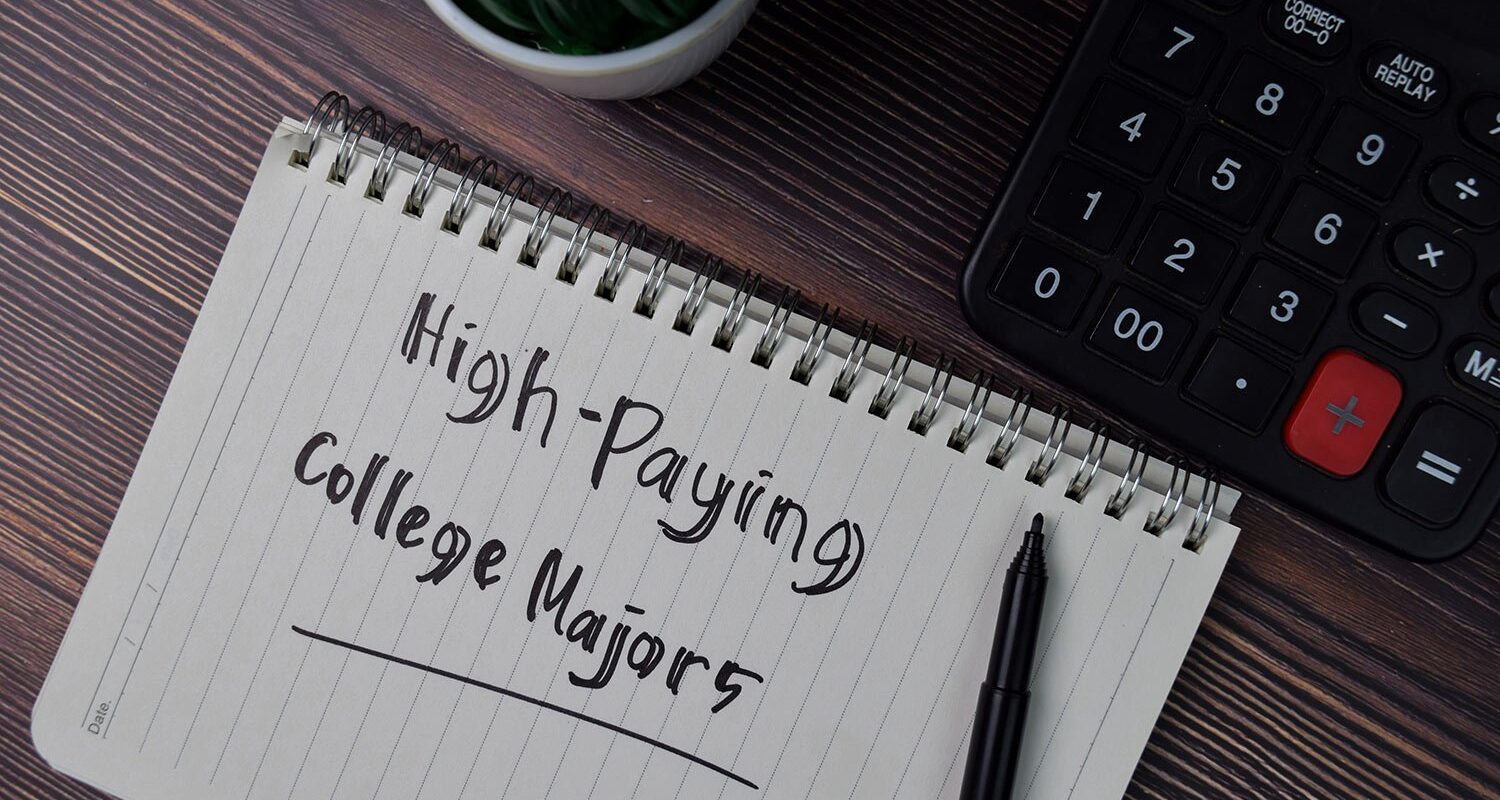 High-Paying
College Majors
Date.
CORRECT
00→0
AUTO
REPLAY
7
8
9
÷
4
5
6
×
1
2
3
−
0
00
.
+
=